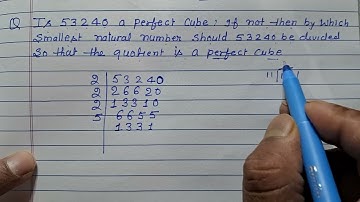 Q Is 53240 a perfect cube? If not then by which
smallest natural number should 53240 be divided
so that the quotient is a perfect cube
2 53240
2 26620
2 13310
5 6655
1331
11